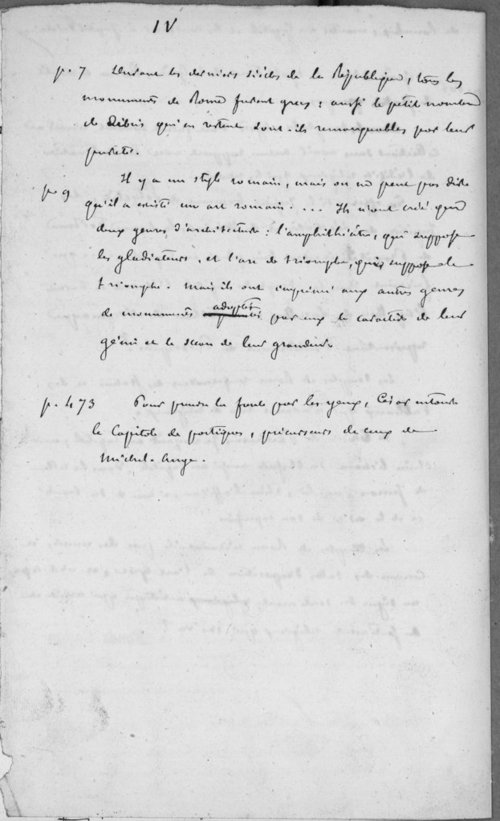 IV
p. 7 Durant les derniers siècles de la République, tous les
monuments de Rome furent grecs : aussi le petit nombre
de débris qui en restent sont-ils remarquables par leur
pureté.
p 9 Il y a un style romain, mais on ne peut pas dire
qu'il a existé un art romain .... Ils n'ont créé que
deux genres d'architecture : l'amphithéâtre, qui suppose
les gladiateurs, et l'arc de triomphe, qui suppose le
triomphe. Mais ils ont imprimé aux autres genres
de monuments adoptés par eux le caractère de leur
génie et le sceau de leur grandeur.
p. 473 Pour prendre la foule par les yeux, César entoure
le Capitole de portiques, précurseurs de ceux de
Michel-Ange.